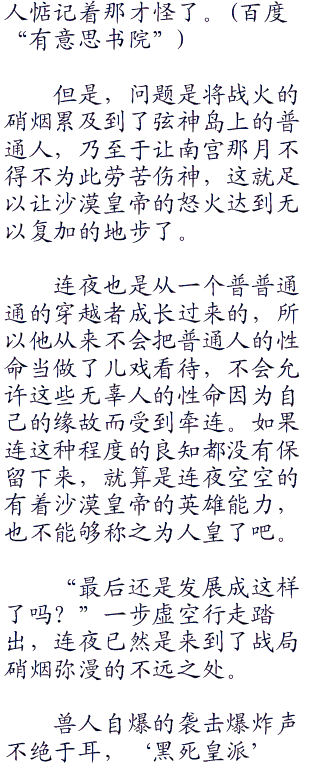 人惦记着那才怪了。(百度
“有意思书院”)
但是，问题是将战火的
硝烟累及到了弦神岛上的普
通人，乃至于让南宫那月不
得不为此劳苦伤神，这就足
以让沙漠皇帝的怒火达到无
以复加的地步了。
连夜也是从一个普普通
通的穿越者成长过来的，所
以他从来不会把普通人的性
命当做了儿戏看待，不会允
许这些无辜人的性命因为自
己的缘故而受到牵连。如果
连这种程度的良知都没有保
留下来，就算是连夜空空的
有着沙漠皇帝的英雄能力，
也不能够称之为人皇了吧。
“最后还是发展成这样
了吗？”一步虚空行走踏
出，连夜已然是来到了战局
硝烟弥漫的不远之处。
兽人自爆的袭击爆炸声
不绝于耳，‘黑死皇派’